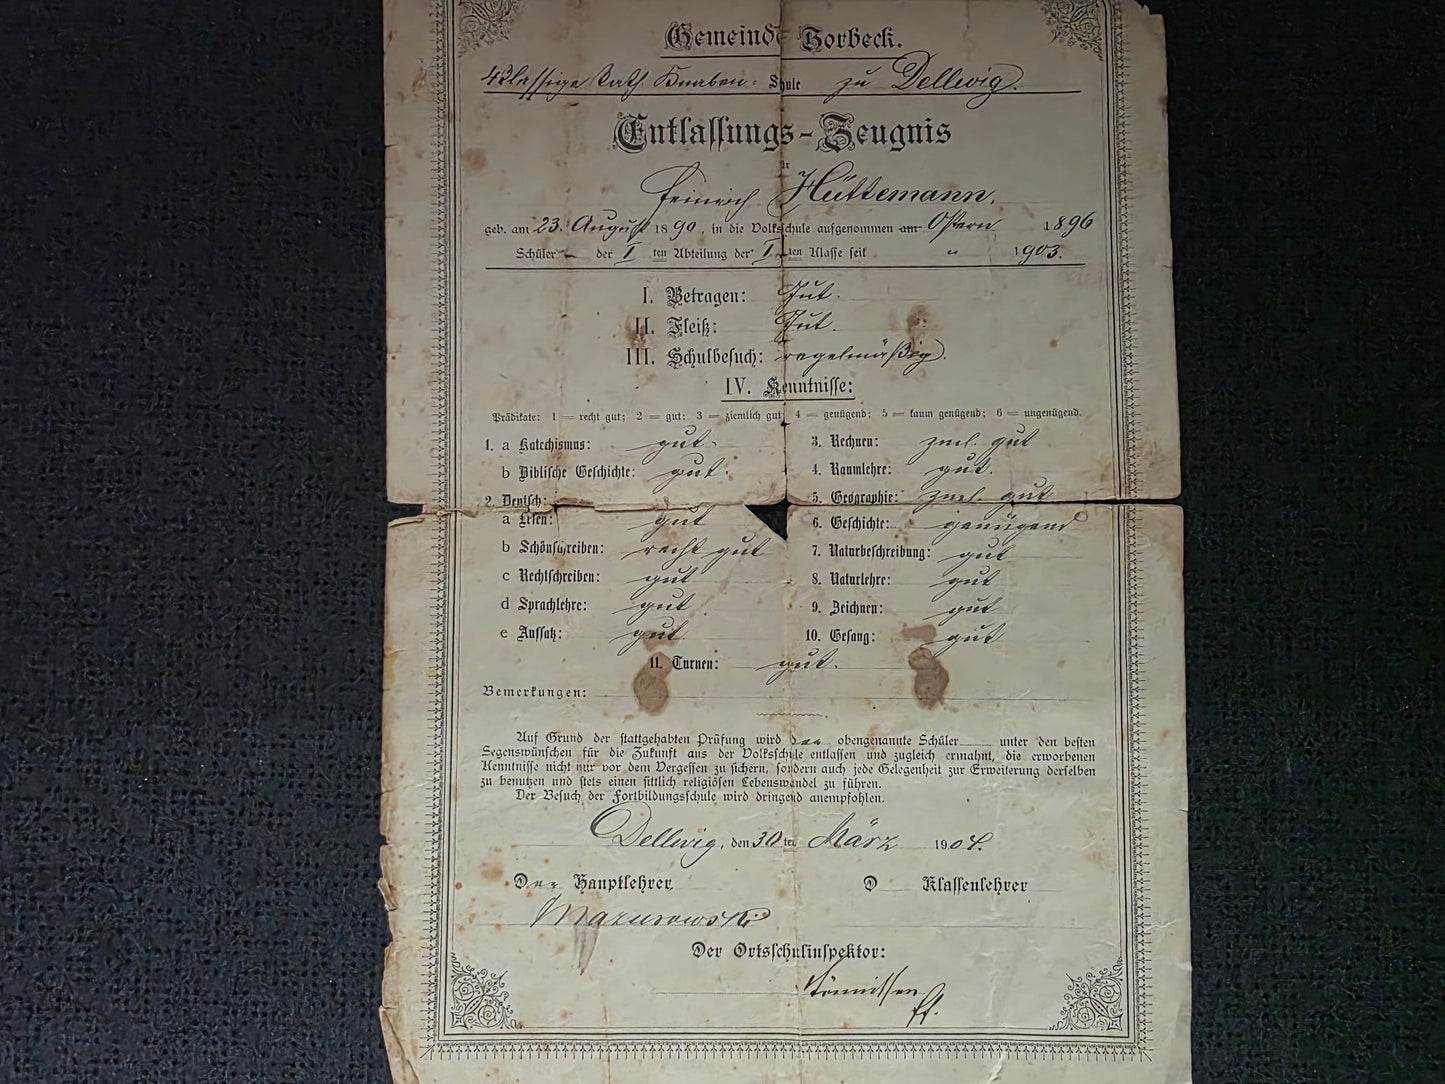 Gemeinde Borbeck.
4klassige kath. Knaben-Schule zu Dellwig.
Entlassungs-Zeugnis
für
Heinrich Hüttemann,
geb. am 23. August 1890, in die Volksschule aufgenommen am Ostern 1896
Schüler der I ten Abteilung der I ten Klasse seit " 1903.
I. Betragen: Gut.
II. Fleiß: Gut.
III. Schulbesuch: regelmäßig.
IV. Kenntnisse:
Prädikate: 1 = recht gut; 2 = gut; 3 = ziemlich gut; 4 = genügend; 5 = kaum genügend; 6 = ungenügend.
1. a Katechismus: gut.
b Biblische Geschichte: gut.
2. Deutsch:
a Lesen: gut
b Schönschreiben: recht gut
c Rechtschreiben: gut
d Sprachlehre: gut
e Aufsatz: gut.
3. Rechnen: zieml. gut
4. Raumlehre: gut.
5. Geographie: zieml. gut
6. Geschichte: genügend
7. Naturbeschreibung: gut
8. Naturlehre: gut
9. Zeichnen: gut
10. Gesang: gut
11. Turnen: gut.
Bemerkungen:
Auf Grund der stattgehabten Prüfung wird der obengenannte Schüler unter den besten
Segenswünschen für die Zukunft aus der Volksschule entlassen und zugleich ermahnt, die erworbenen
Kenntnisse nicht nur vor dem Vergessen zu sichern, sondern auch jede Gelegenheit zur Erweiterung derselben
zu benutzen und stets einen sittlich religiösen Lebenswandel zu führen.
Der Besuch der Fortbildungsschule wird dringend anempfohlen.
Dellwig, den 30 ten März 1904.
Der Hauptlehrer
D Klassenlehrer
Mazurowski
Der Ortsschulinspektor: